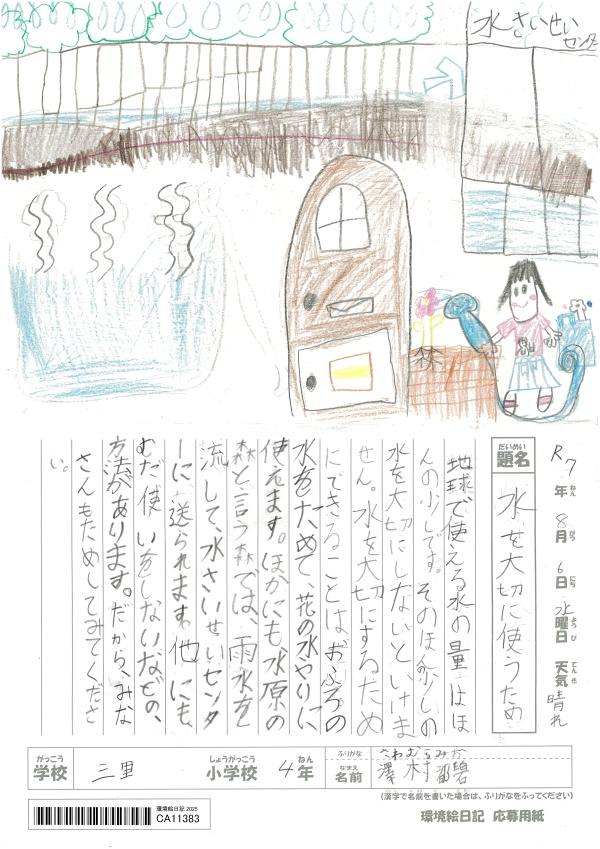 水さいせい
センター
R7年8月6日水曜日 天気晴れ
ねん がつ にち ようび てんき
だいめい
題名
水を大切に使うため
地球で使える水の量はほ
んの少しです。そのほん少しの
水を大切にしないといけま
せん。水を大切にするため
にできることはおふろの
水をためて、花の水やりに
使えます。ほかにも水原の
森と言う森では、雨水を
流して、水さいせいセンタ
ーに送られます。他にも、
むだ使いをしないなどの、
方法があります。だから、みな
さんもためしてみてくださ
い。
がっこう しょうがっこう ねん ふりがな さわむらみお
学校 三里 小学校 4年 なまえ 名前 澤村 碧
(漢字で名前を書いた場合は、ふりがなをふってください)
環境絵日記 2025
CA11383
環境絵日記 応募用紙